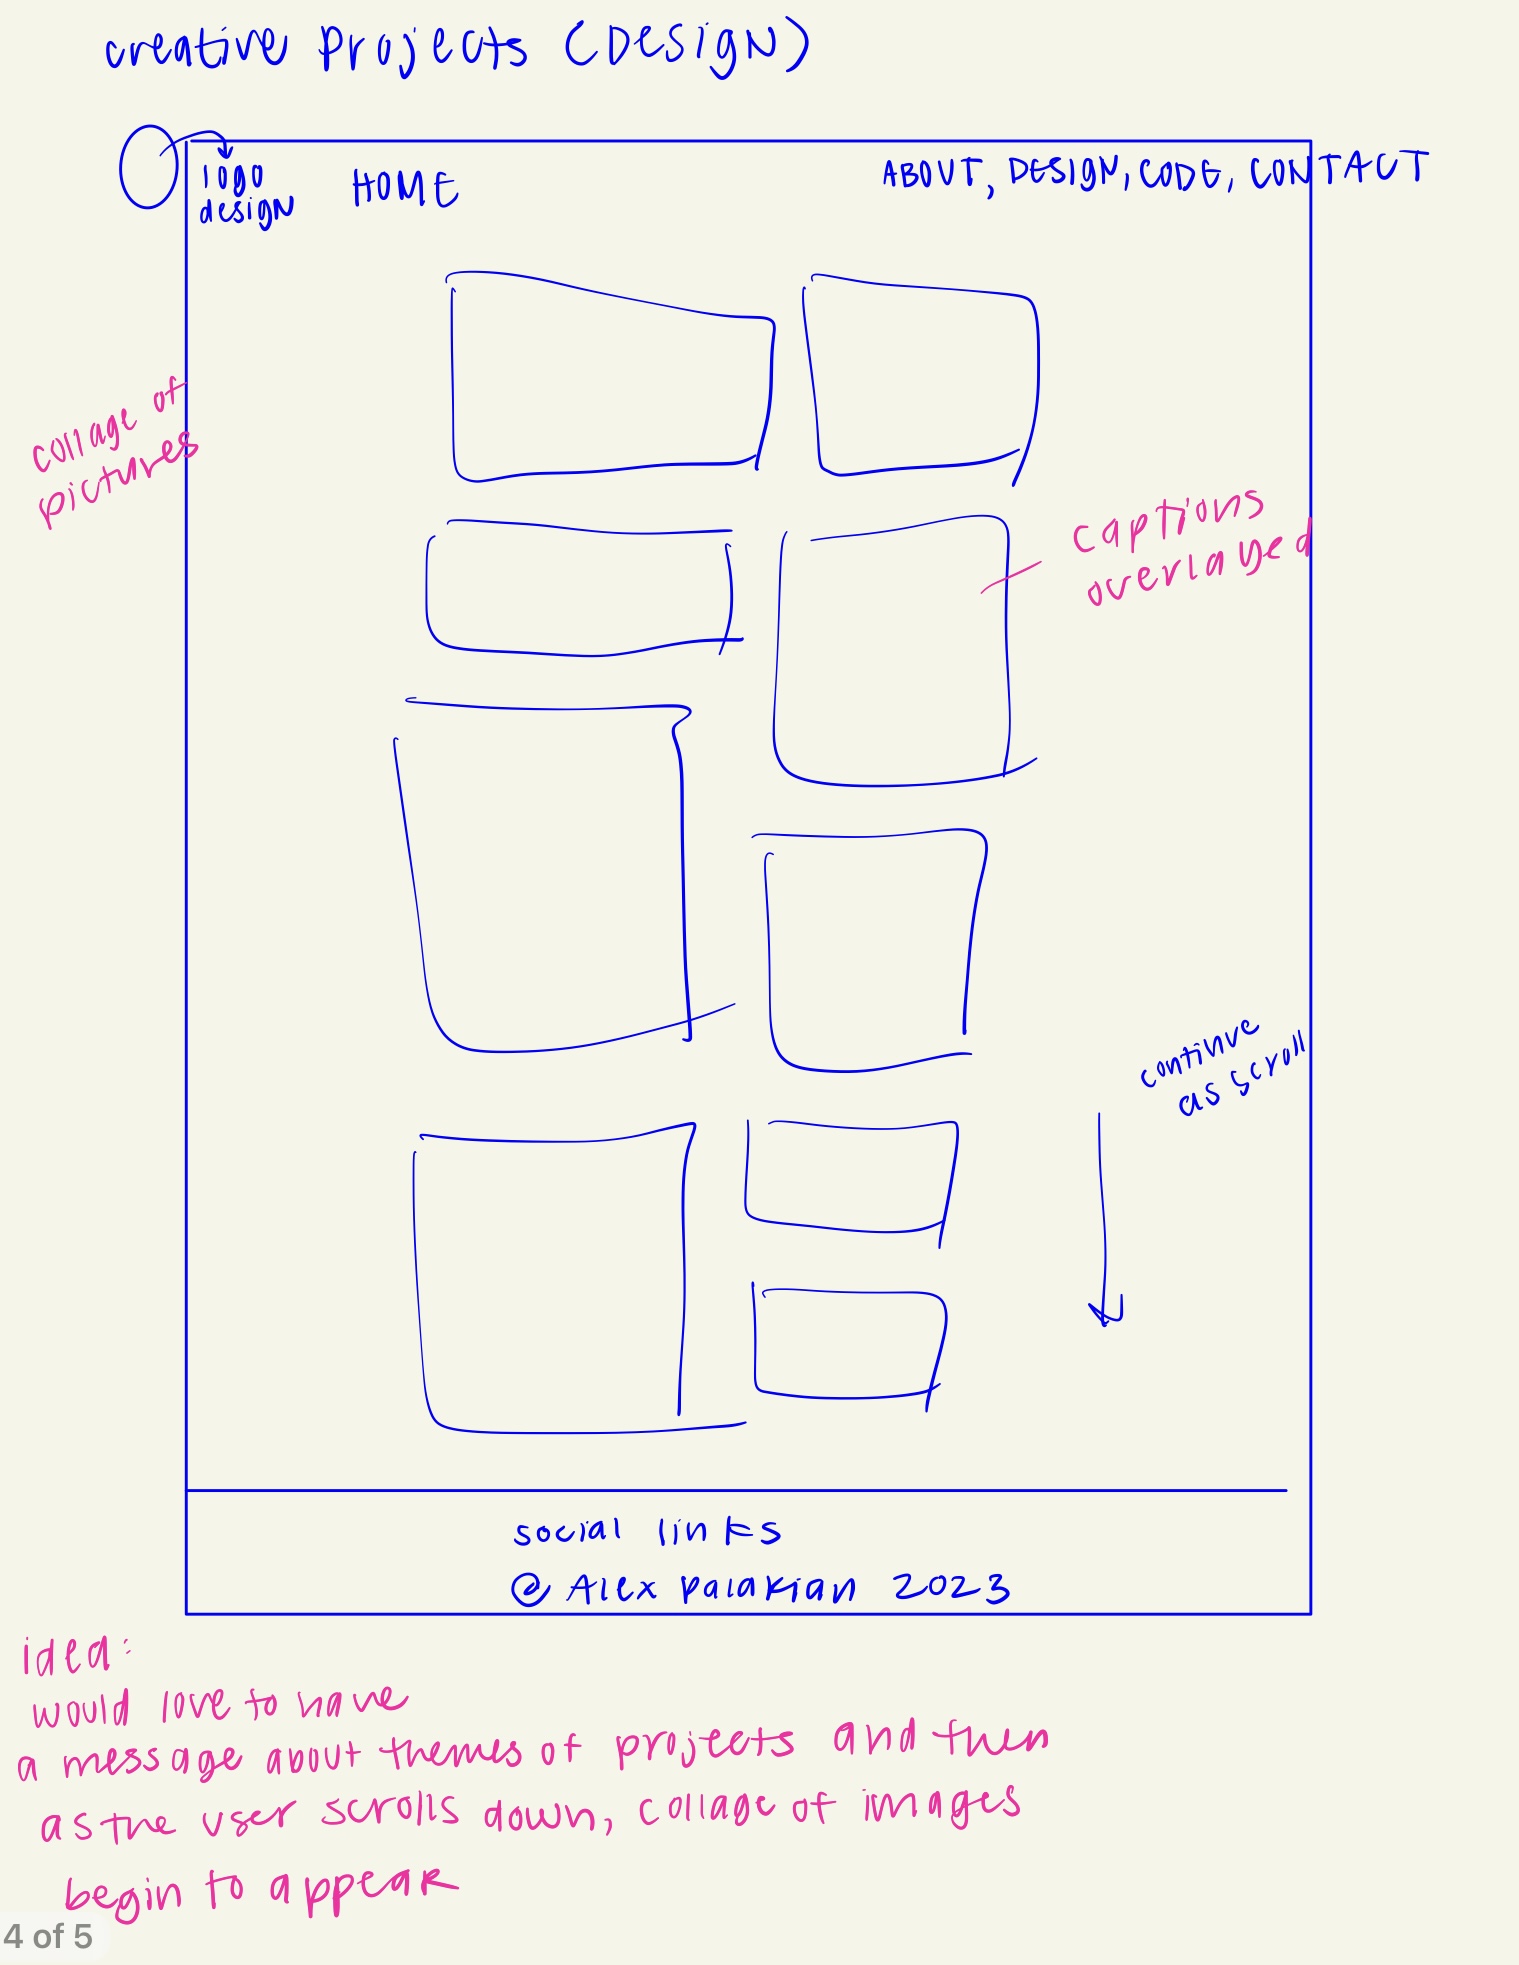 creative projects (DESIGN)
logo
design
HOME
ABOUT, DESIGN, CODE, CONTACT
collage of
pictures
captions
overlayed
continue
as scroll
social links
@ Alex Palakian 2023
idea:
would love to have
a message about themes of projects and then
as the user scrolls down, collage of images
begin to appear
4 of 5